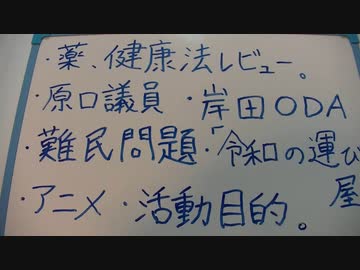 ・薬、健康法レビュー。
・原口議員 ・岸田ODA
・難民問題・「令和の運び
屋
・アニメ ・活動目的。